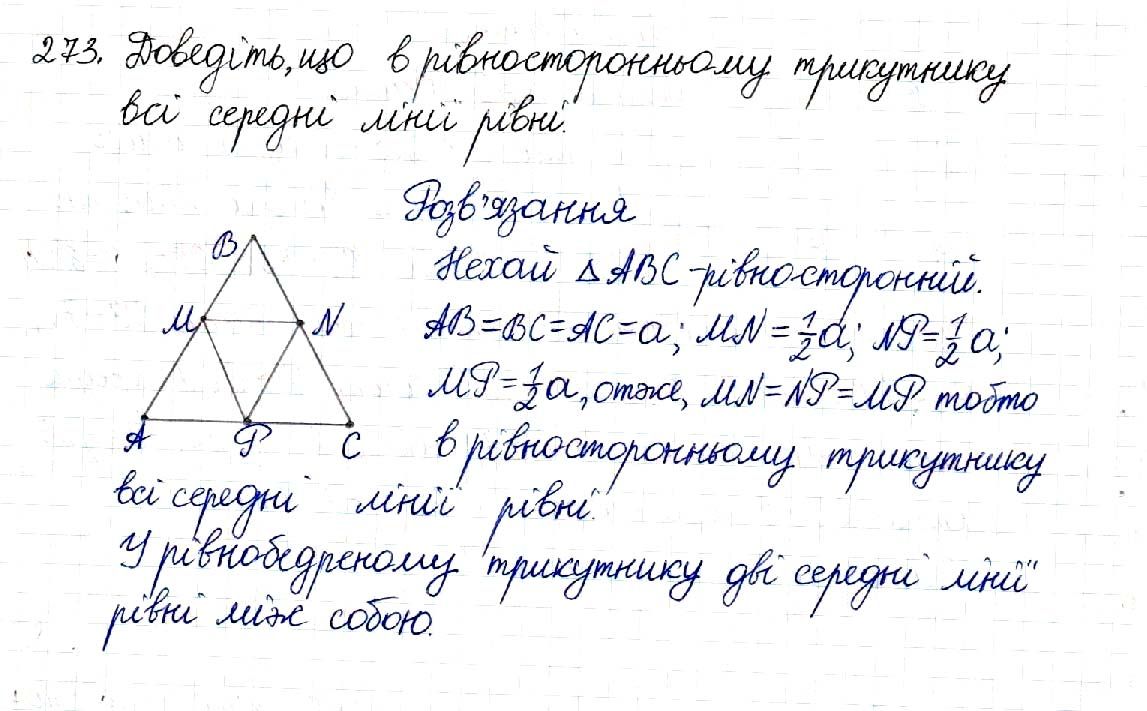 273. Доведіть, що в рівносторонньому трикутнику
всі середні лінії рівні.
Розв'язання
B
Нехай △ABC - рівносторонній.
M N
AB=BC=AC=a; MN=1/2a; NP=1/2a;
MP=1/2a, отже, MN=NP=MP, тобто
A P C
в рівносторонньому трикутнику
всі середні лінії рівні.
У рівнобедреному трикутнику дві середні лінії
рівні між собою.